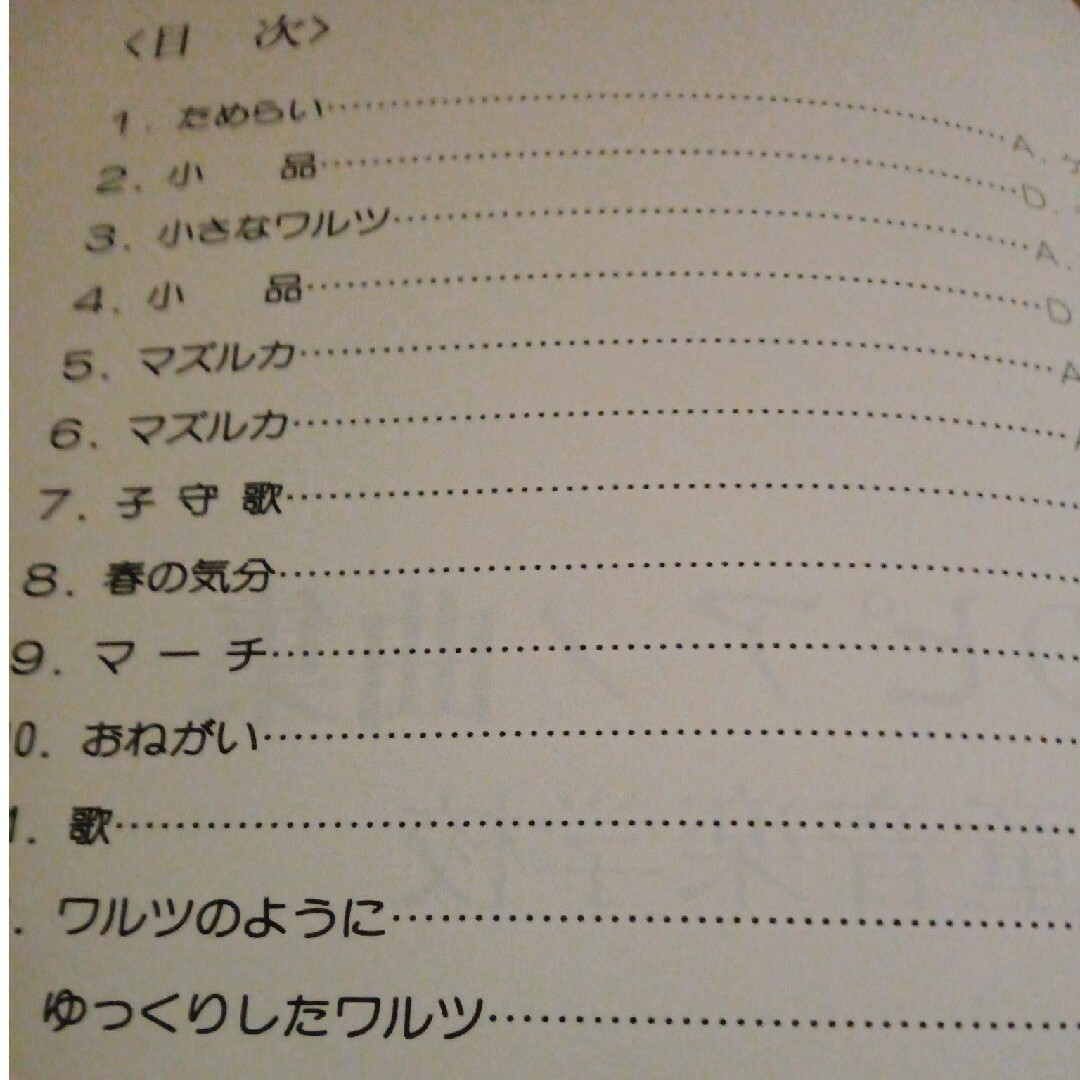 〈目 次〉
1. ためらい……………………A.
2. 小 品……………………D.
3. 小さなワルツ……………………A.
4. 小 品……………………D
5. マズルカ……………………A
6. マズルカ……………………
7. 子 守 歌……………………
8. 春の気分……………………
9. マ ー チ……………………
0. おねがい……………………
1. 歌……………………
. ワルツのように……………………
ゆっくりしたワルツ……………………